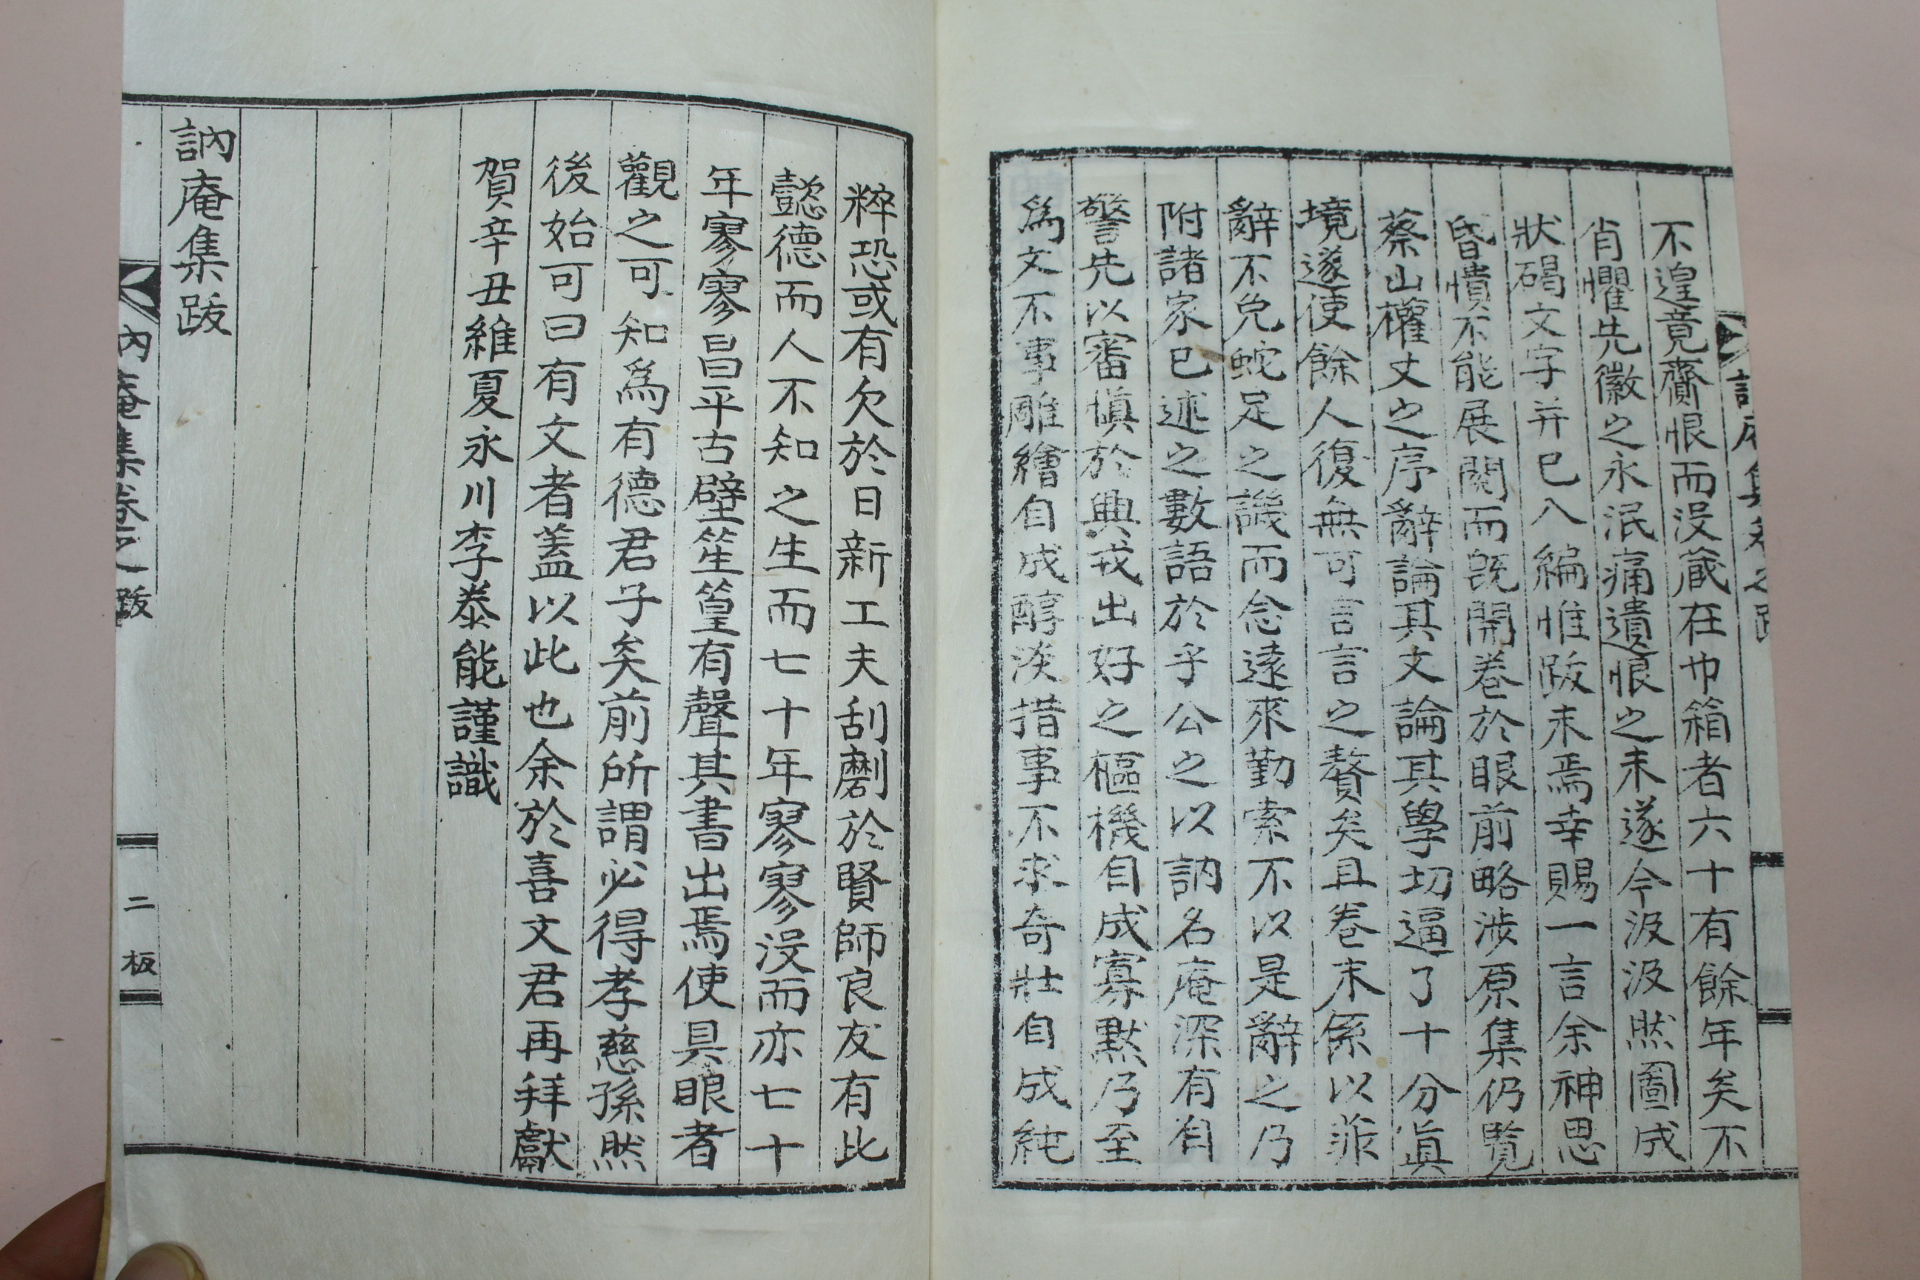 不遑竟齎恨而沒蔵在巾箱者六十有餘年矣不
肖懼先徽之永泯痛遺恨之未遂今汲汲然圖成
狀碣文字幷已入編惟跋未焉幸賜一言余神思
昏憒不能展閱而旣開卷於眼前略涉原集仍覧
蔡山權丈之序辭論其文論其學切逼了十分眞
境遂使餘人復無可言言之贅矣且卷末係以菲
辭不免蛇足之譏而念遠來勤索不以是辭之乃
附諸家已述之數語於乎公之以訥名庵深有自
警先以審愼於興戎出好之樞機自成寡默乃至
爲文不事雕繪自成醇淡措事不求奇壯自成純
粹恐或有欠於日新工夫刮劘於賢師良友有此
懿德而人不知之生而七十年寥寥沒而亦七十
年寥寥昌平古壁笙篁有聲其書出焉使具眼者
觀之可知爲有德君子矣前所謂必得孝慈孫然
後始可曰有文者蓋以此也余於喜文君再拜獻
賀辛丑維夏永川李泰能謹識
訥庵集跋
訥庵集卷之跋
二
板